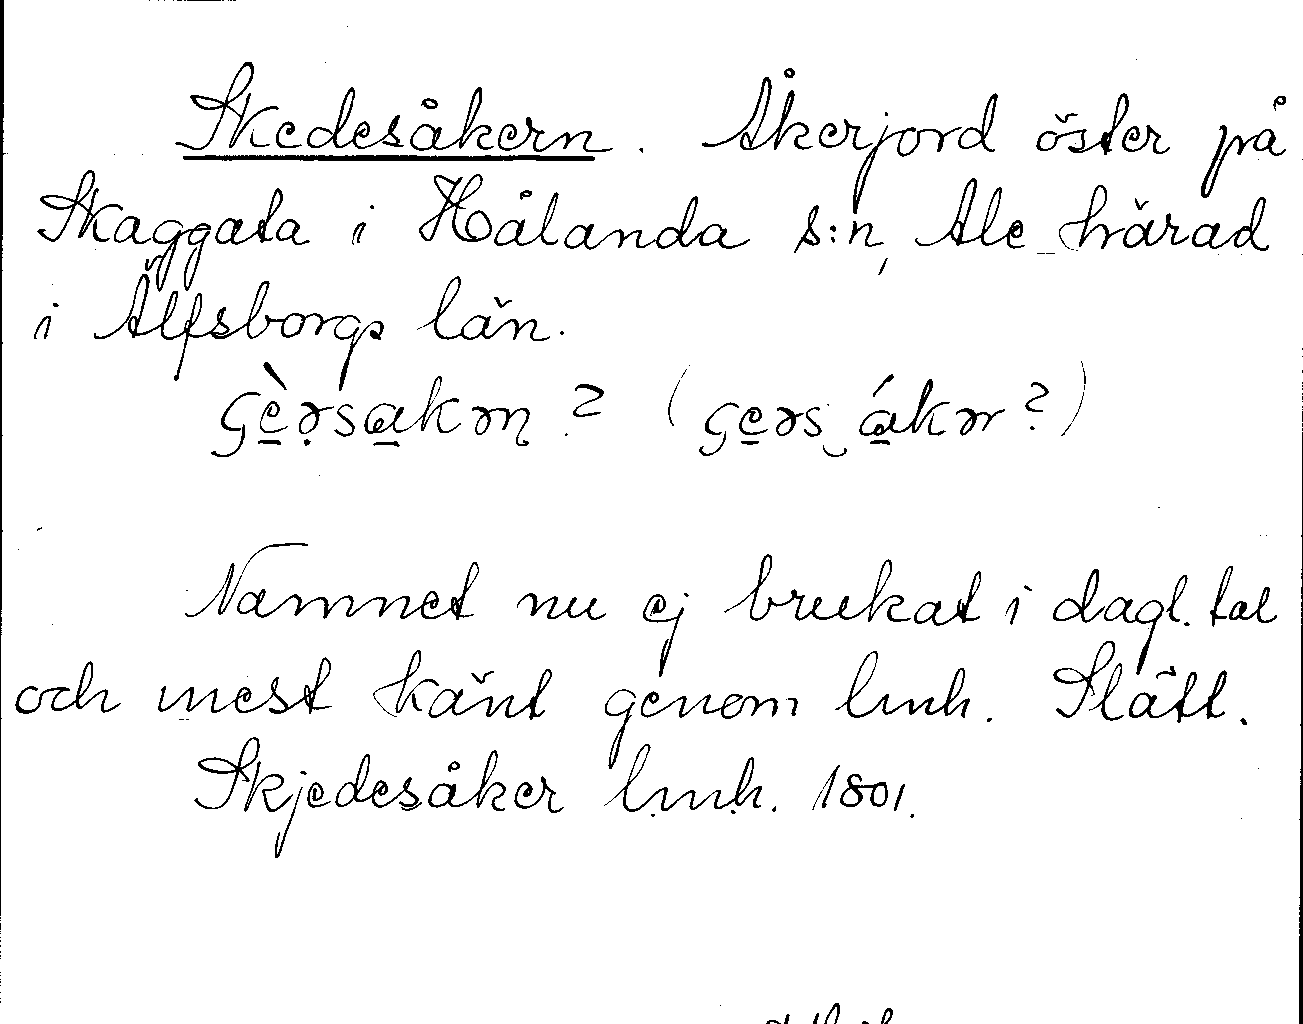 Skedesåkern. Åkerjord öster på
Skaggata i Hålanda s:n, Ale härad
i Älfsborgs län.
Namnet nu ej brukat i dagl. tal
och mest känt genom lmh. Slätt.
Skjedesåker lmh. 1801.